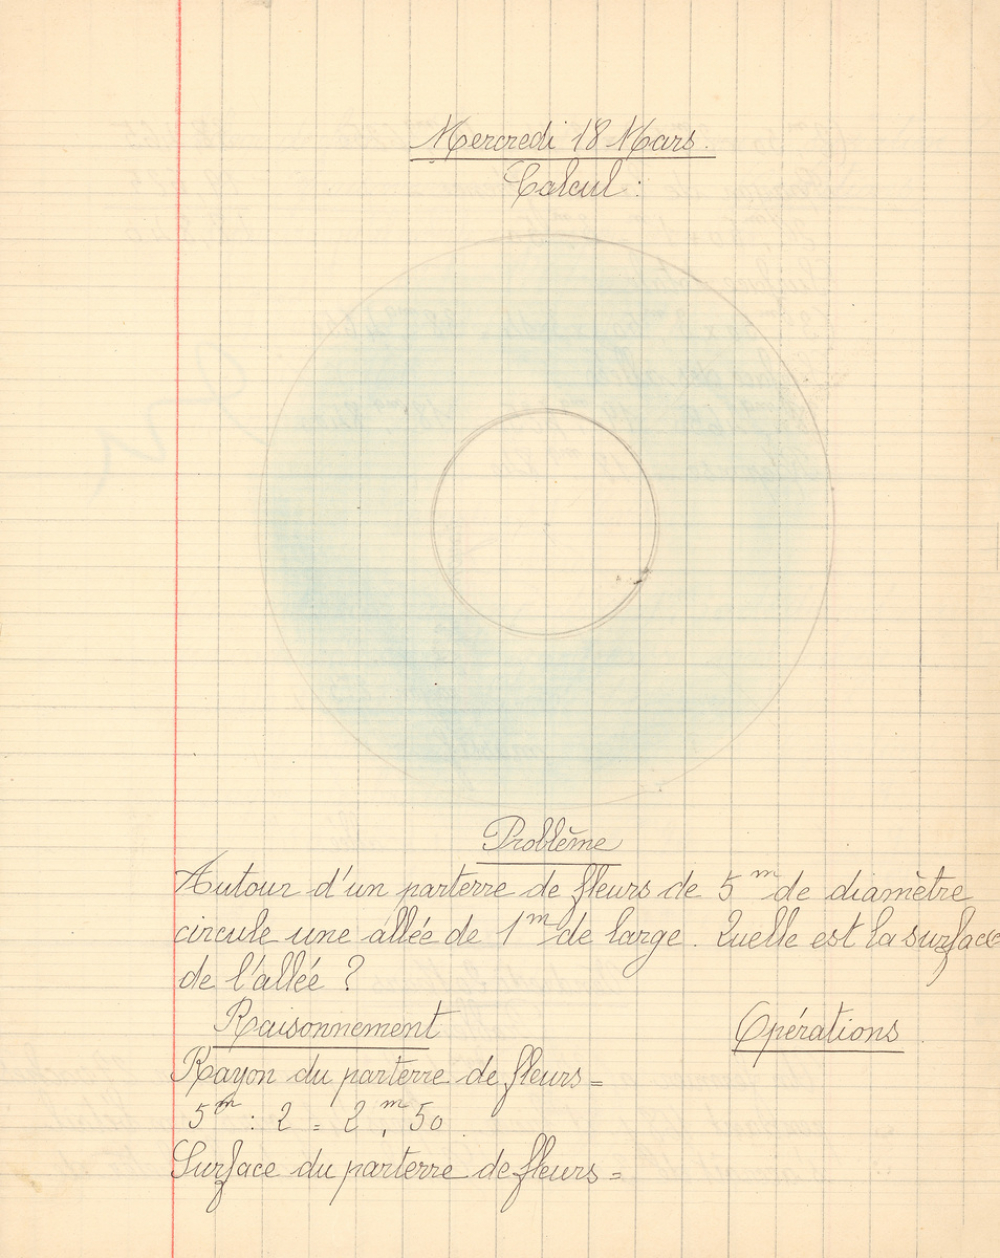 Mercredi 18 Mars.
Calcul :
Problème
Autour d'un parterre de fleurs de 5 m de diamètre
circule une allée de 1 m de large. Quelle est la surface
de l'allée ?
Raisonnement
Opérations
Rayon du parterre de fleurs =
5 m : 2 = 2, m 50
Surface du parterre de fleurs =